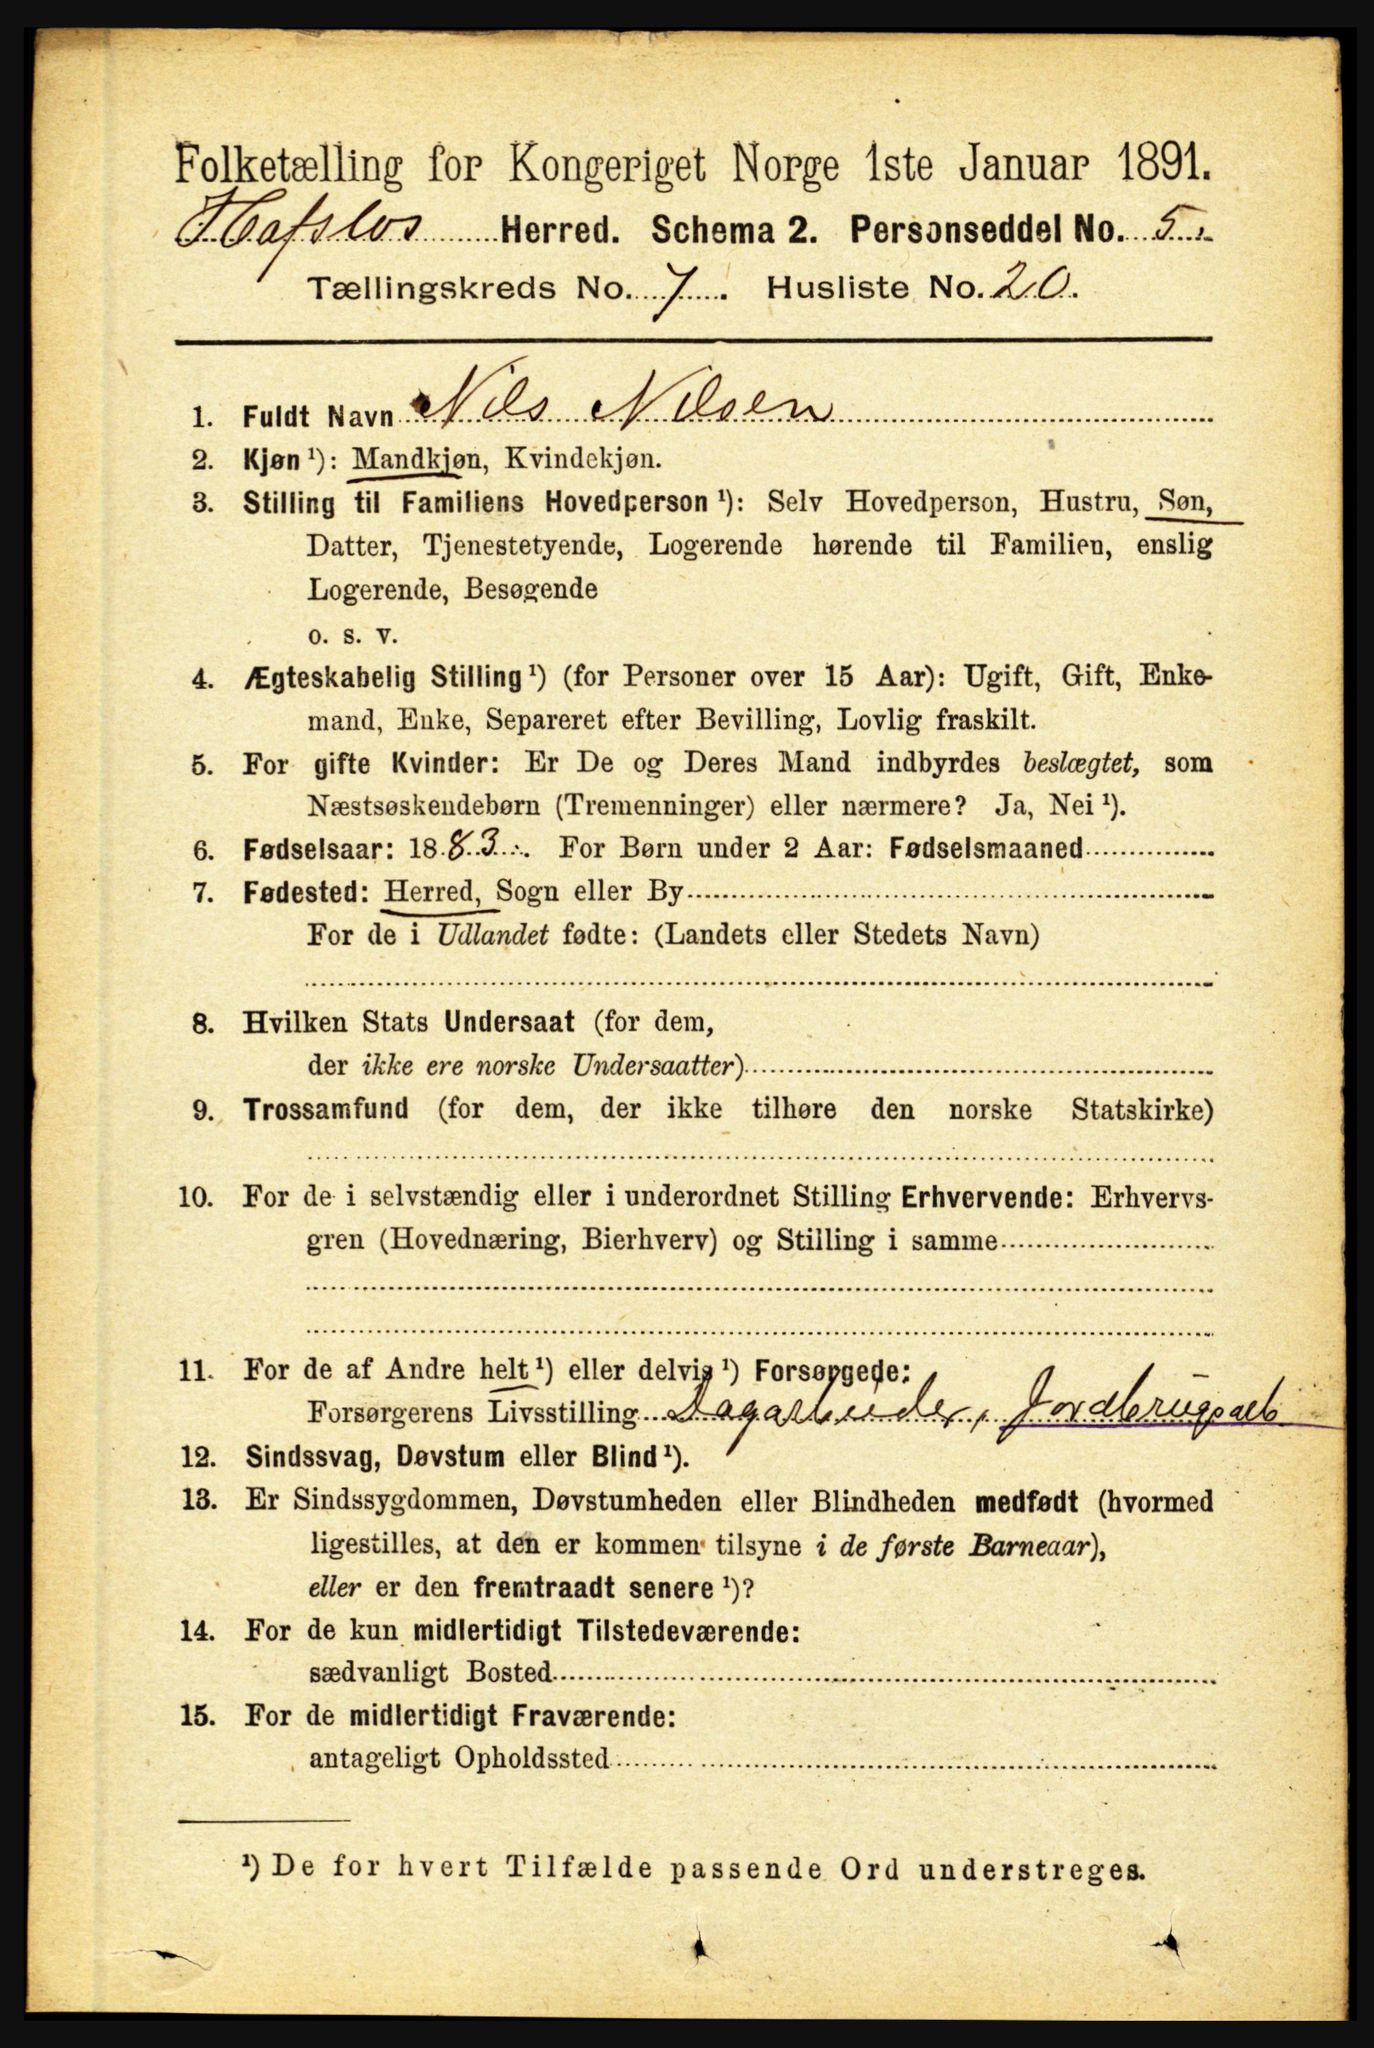 Folketælling for Kongeriget Norge 1ste Januar 1891.
Hafslos Herred. Schema 2. Personseddel No. 5.
Tællingskreds No. 7. Husliste No. 20.
1. Fuldt Navn Nils Nilsen
2. Kjøn ¹): Mandkjøn, Kvindekjøn.
3. Stilling til Familiens Hovedperson ¹): Selv Hovedperson, Hustru, Søn,
Datter, Tjenestetyende, Logerende hørende til Familien, enslig
Logerende, Besøgende
o. s. v.
4. Ægteskabelig Stilling ¹) (for Personer over 15 Aar): Ugift, Gift, Enke-
mand, Enke, Separeret efter Bevilling, Lovlig fraskilt.
5. For gifte Kvinder: Er De og Deres Mand indbyrdes beslægtet, som
Næstsøskendebørn (Tremenninger) eller nærmere? Ja, Nei ¹).
6. Fødselsaar: 1883. For Børn under 2 Aar: Fødselsmaaned
7. Fødested: Herred, Sogn eller By
For de i Udlandet fødte: (Landets eller Stedets Navn)
8. Hvilken Stats Undersaat (for dem,
der ikke ere norske Undersaatter)
9. Trossamfund (for dem, der ikke tilhøre den norske Statskirke)
10. For de i selvstændig eller i underordnet Stilling Erhvervende: Erhvervs-
gren (Hovednæring, Bierhverv) og Stilling i samme
11. For de af Andre helt ¹) eller delvis ¹) Forsørgede:
Forsørgerens Livsstilling Dagarbeider, Jordbrugsarb
12. Sindssvag, Døvstum eller Blind ¹).
13. Er Sindssygdommen, Døvstumheden eller Blindheden medfødt (hvormed
ligestilles, at den er kommen tilsyne i de første Barneaar),
eller er den fremtraadt senere ¹)?
14. For de kun midlertidigt Tilstedeværende:
sædvanligt Bosted
15. For de midlertidigt Fraværende:
antageligt Opholdssted
¹) De for hvert Tilfælde passende Ord understreges.